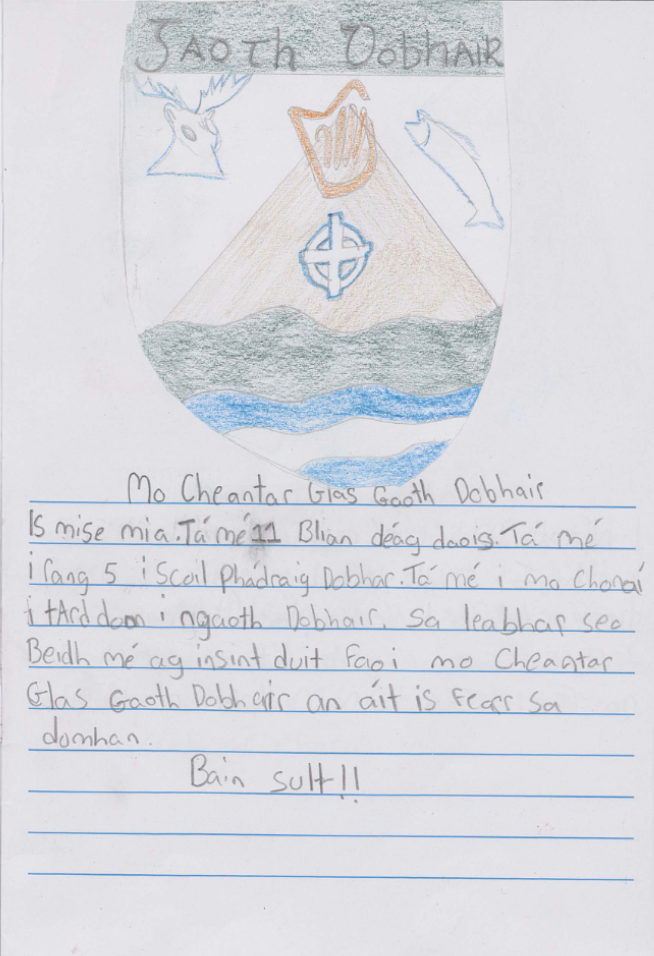 Gaoth Dobhair
Mo Cheantar Glas Gaoth Dobhair
Is mise mia. Tá mé 11 Blian déag daois. Tá mé
i rang 5 i Scoil Phádraig Dobhar. Tá mé i mo Chonaí
i tArd don i ngaoth Dobhair. Sa leabhar seo
Beidh mé ag insint duit faoi mo Cheantar
Glas Gaoth Dobhair an áit is fearr sa
domhan.
Bain sult!!